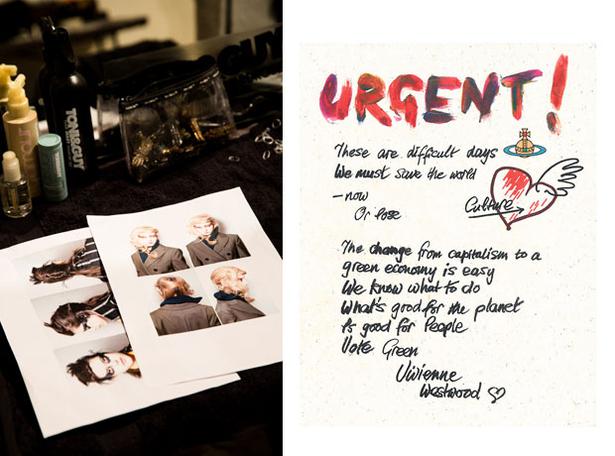 TONI&GUY
GUY
URGENT!
These are difficult days
We must save the world
– now
Or lose
Culture
The change from capitalism to a
green economy is easy
We know what to do
What's good for the planet
Is good for People
Vote Green
Vivienne
Westwood